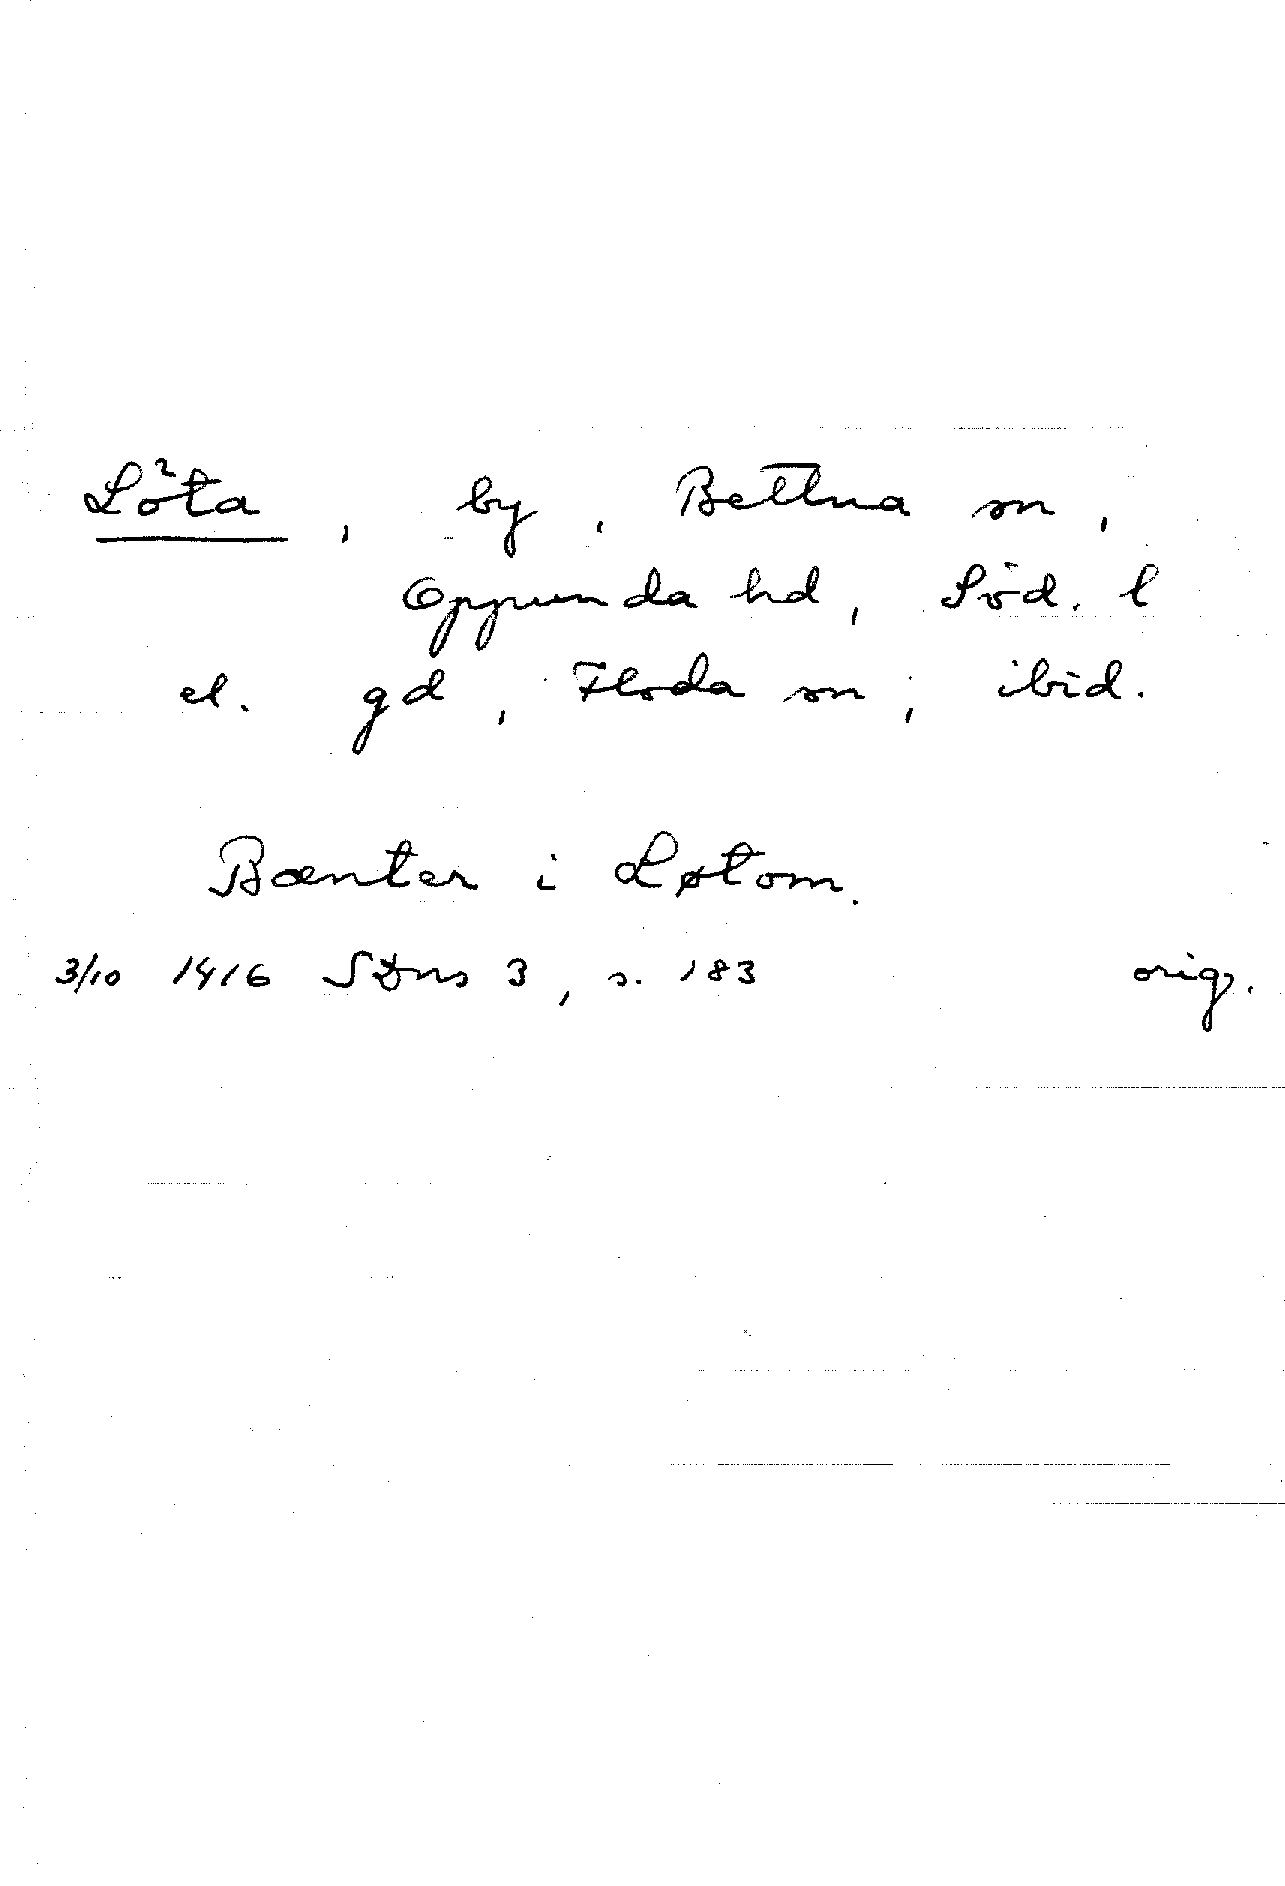 Löta, by, Bettna sn,
Oppunda hd, Söd. l
el. gd, Floda sn, ibid.
Bænter i Løtom.
3/10 1416 SDns 3, s. 183 orig.